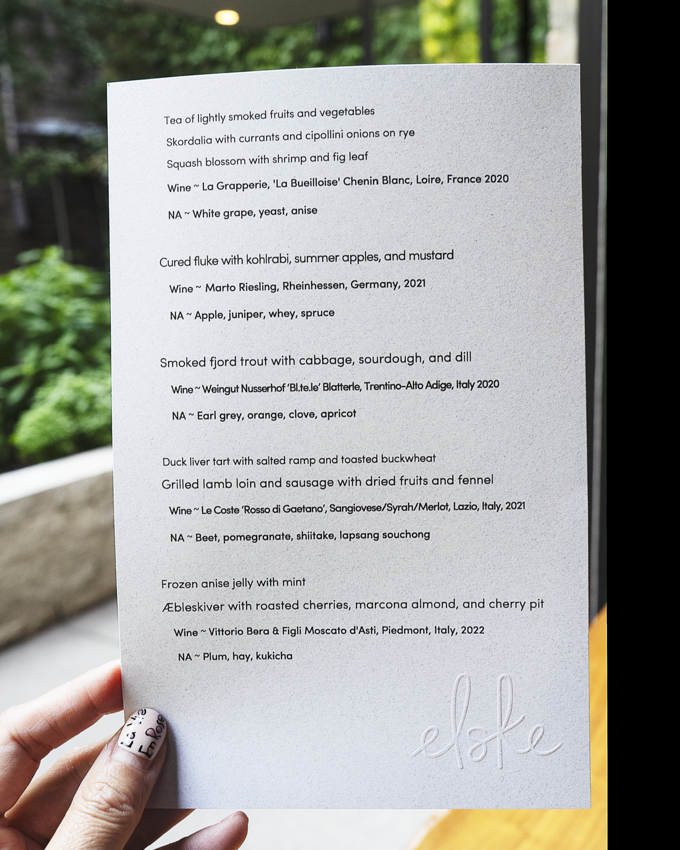 Tea of lightly smoked fruits and vegetables
Skordalia with currants and cipollini onions on rye
Squash blossom with shrimp and fig leaf
Wine ~ La Grapperie, 'La Bueilloise' Chenin Blanc, Loire, France 2020
NA ~ White grape, yeast, anise
Cured fluke with kohlrabi, summer apples, and mustard
Wine ~ Marto Riesling, Rheinhessen, Germany, 2021
NA ~ Apple, juniper, whey, spruce
Smoked fjord trout with cabbage, sourdough, and dill
Wine ~ Weingut Nusserhof 'Bl.te.le' Blatterle, Trentino-Alto Adige, Italy 2020
NA ~ Earl grey, orange, clove, apricot
Duck liver tart with salted ramp and toasted buckwheat
Grilled lamb loin and sausage with dried fruits and fennel
Wine ~ Le Coste 'Rosso di Gaetano', Sangiovese/Syrah/Merlot, Lazio, Italy, 2021
NA ~ Beet, pomegranate, shiitake, lapsang souchong
Frozen anise jelly with mint
Æbleskiver with roasted cherries, marcona almond, and cherry pit
Wine ~ Vittorio Bera & Figli Moscato d'Asti, Piedmont, Italy, 2022
NA ~ Plum, hay, kukicha
elske